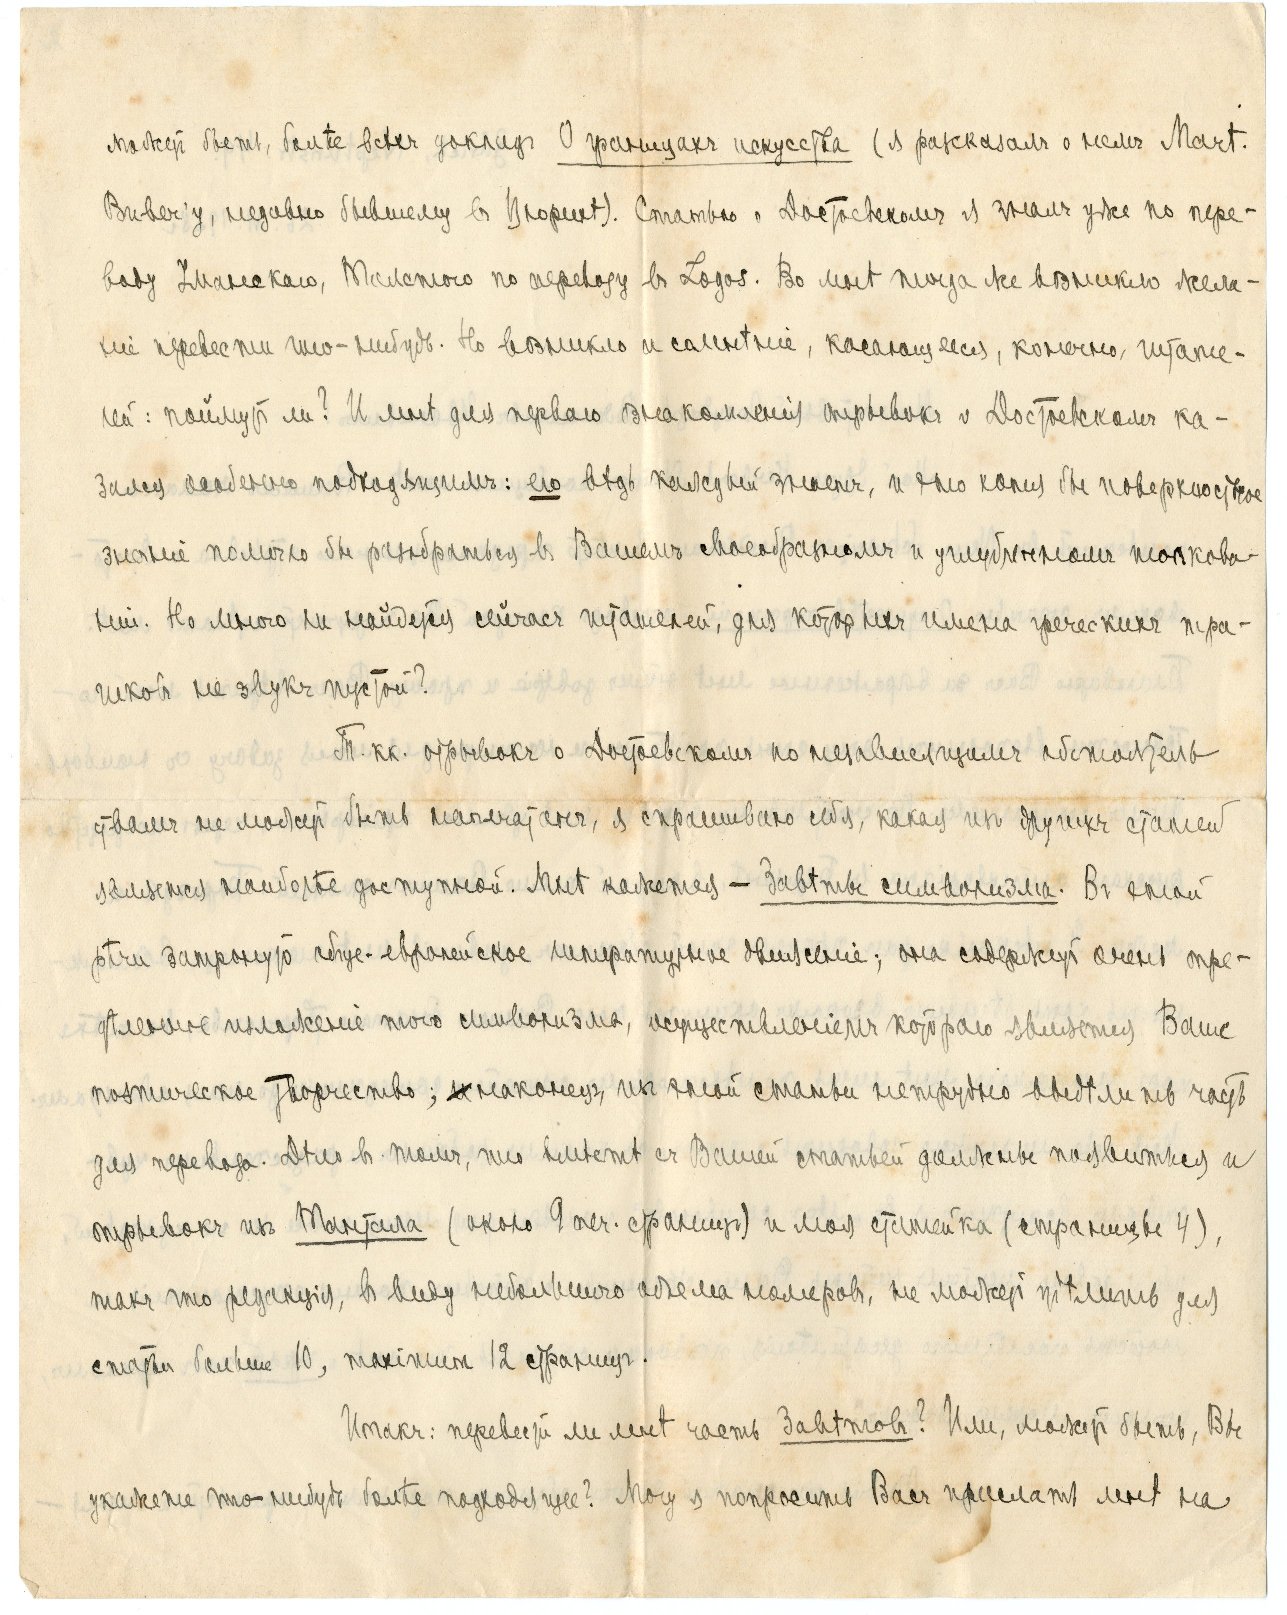 можетъ быть, болѣе всѣхъ докладъ О границахъ искусства (я разсказалъ о немъ Март.
Бубер'у, недавно бывшему въ Цюрихѣ). Статью о Достоевскомъ я зналъ уже по пере-
воду Уманскаго, Толстого по переводу въ Logos. Во мнѣ тогда же возникло жела-
ніе перевести что-нибудь. Но возникло и сомнѣніе, касающееся, конечно, читате-
лей: поймутъ ли? И мнѣ для перваго ознакомленія отрывокъ о Достоевскомъ ка-
зался особенно подходящимъ: его вѣдь каждый знаетъ, и это хотя бы поверхностное
знаніе помогло бы разобраться въ Вашемъ своеобразномъ и углубленномъ толкова-
ніи. Но много ли найдется сейчасъ читателей, для которыхъ имена греческихъ тра-
гиковъ не звукъ пустой?
Т. кк. отрывокъ о Достоевскомъ по независящимъ обстоятель
ствамъ не можетъ быть напечатанъ, я спрашиваю себя, какая изъ другихъ статей
является наиболѣе доступной. Мнѣ кажется — Завѣты символизма. Въ этой
рѣчи затронуто обще-европейское литературное движеніе; она содержитъ очень опре-
дѣленное изложеніе того символизма, осуществленіемъ котораго является Ваше
поэтическое творчество; наконецъ, изъ этой статьи нетрудно выдѣлить часть
для перевода. Дѣло въ томъ, что вмѣстѣ съ Вашей статьей должны появиться и
отрывокъ изъ Тантала (около 9 печ. страницъ) и моя статейка (страницы 4),
такъ что редакція, въ виду небольшого объема номеровъ, не можетъ удѣлить для
статьи больше 10, maximum 12 страницъ.
Итакъ: перевести ли мнѣ часть Завѣтовъ? Или, можетъ быть, Вы
укажете что-нибудь болѣе подходящее? Могу я попросить Васъ прислать мнѣ на